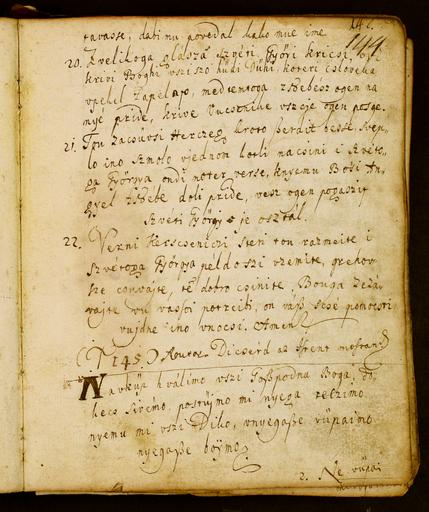 142.
144.
tavasse, dabi mu povedal kako mue ime
20. Z velikoga glásza Szvéti Györi kricsi,
krivi Boghi vsziszo hüdi Dühi, koteri csloveka
vpekel zapelajo, med temtoga z Nebesz ogen
nyé pride, krive vszeje ogen posge.
21. Tou zacsüvsi Herczeg kroto szerdit besse,
ino szmolo vjednom kotli nacsini i Szvéto-
ga Györya ondi noter verse, knyemu Bosi An-
gyel z Nebé doli pride, vesz ogen pogaszit
Szvéti György je osztal.
22. Verni Kerscseniczi steri tou razmeite i
Szvétoga Györgya peldo szi vzemite, grehov
sze csuvajte, te dobro csinite, Bouga
vajte vu vassoi potreiboi, on vasz scsé pomocsti
vu jdne ino vnocsi. Amen
(T 145) Aouroe Dicsérd az Istent mostan
Navküp hválimo vszi Goszpodna Boga,
hecs sivémo, postüjmo mi nyega zelzimo
nyemu mi vszi Diko, vnyegasse vüpaimo
nyegasse boymo.
2. Ne vüpai